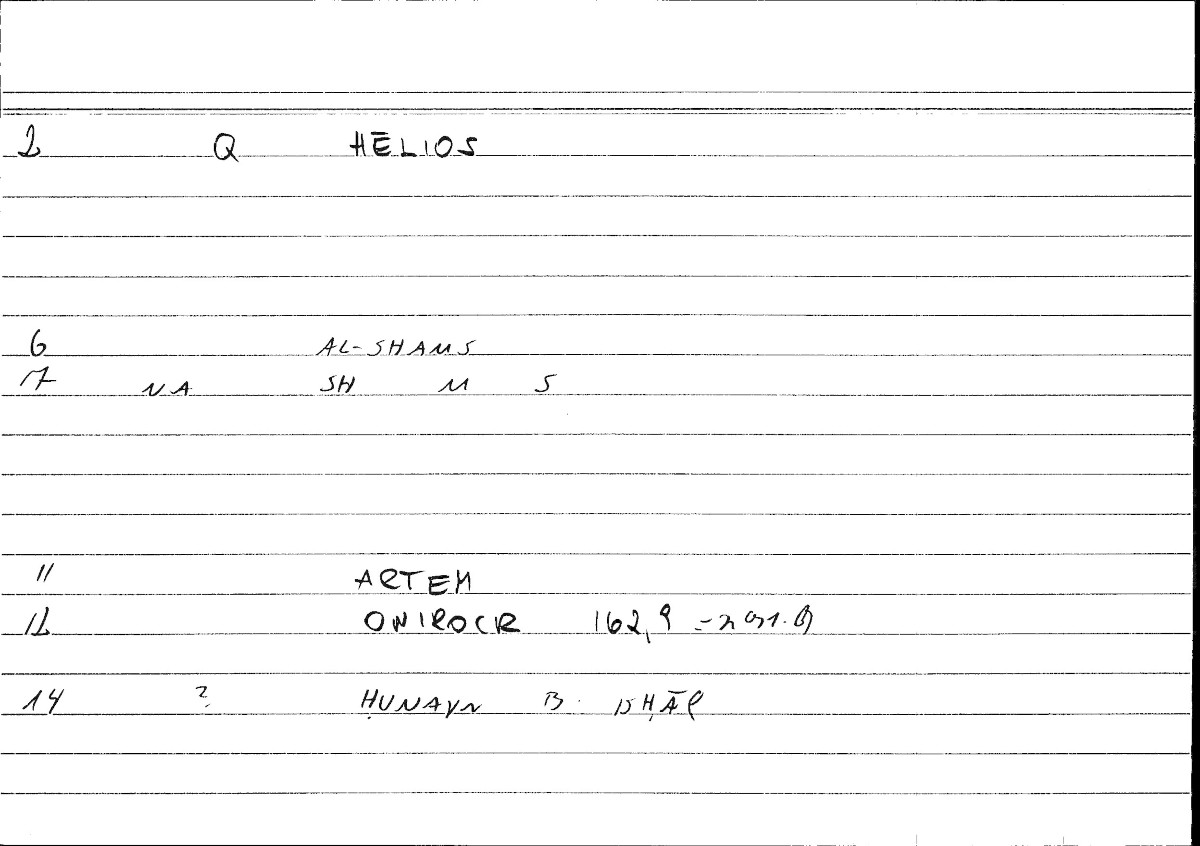 2 Q HĒLIOS
6 AL-SHAMS
7 NA SH M S
11 ARTEM
12 ONIROCR 162,9
14 ? ḤUNAYN B. ISḤĀQ